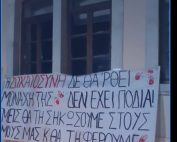 Η ΔΙΚΑΙΟΣΥΝΗ ΔΕ ΘΑ ΡΘΕΙ
ΜΟΝΑΧΗ ΤΗΣ ΔΕΝ ΕΧΕΙ ΠΟΔΙΑ!
ΜΕΙΣ ΘΑ ΤΗ ΣΗΚΩΣΟΥΜΕ ΣΤΟΥΣ
ΜΟΥΣ ΜΑΣ Κ ΘΑ ΤΗ ΦΕΡΟΥΜΕ